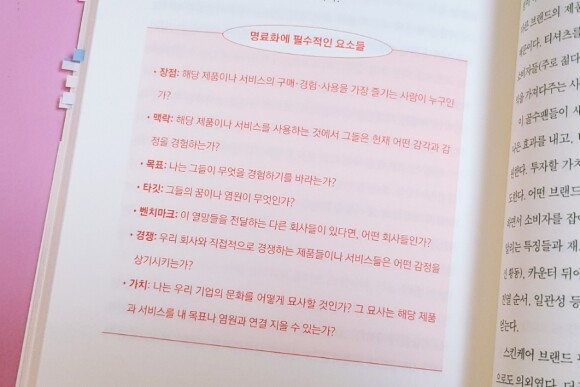 명료화에 필수적인 요소들
• 장점: 해당 제품이나 서비스의 구매·경험·사용을 가장 즐기는 사람이 누구인
가?
• 맥락: 해당 제품이나 서비스를 사용하는 것에서 그들은 현재 어떤 감각과 감
정을 경험하는가?
• 목표: 나는 그들이 무엇을 경험하기를 바라는가?
• 타깃: 그들의 꿈이나 염원이 무엇인가?
• 벤치마크: 이 열망들을 전달하는 다른 회사들이 있다면, 어떤 회사들인가?
• 경쟁: 우리 회사와 직접적으로 경쟁하는 제품들이나 서비스들은 어떤 감정을
상기시키는가?
• 가치: 나는 우리 기업의 문화를 어떻게 묘사할 것인가? 그 묘사는 해당 제품
과 서비스를 내 목표나 염원과 연결 지을 수 있는가?
브랜드의 제품
티셔츠를
(주로 젊다
가져다주는 사
이 골수팬들이 사
효과를 내고,
한다. 투자할 가치
드한다. 어떤 브랜드
하면서 소비자를 잡아
특징들과 재
활동), 카운터 뒤어
진열 순서, 일관성 등
는다.
스킨케어 브랜드
으로도 의외였다.